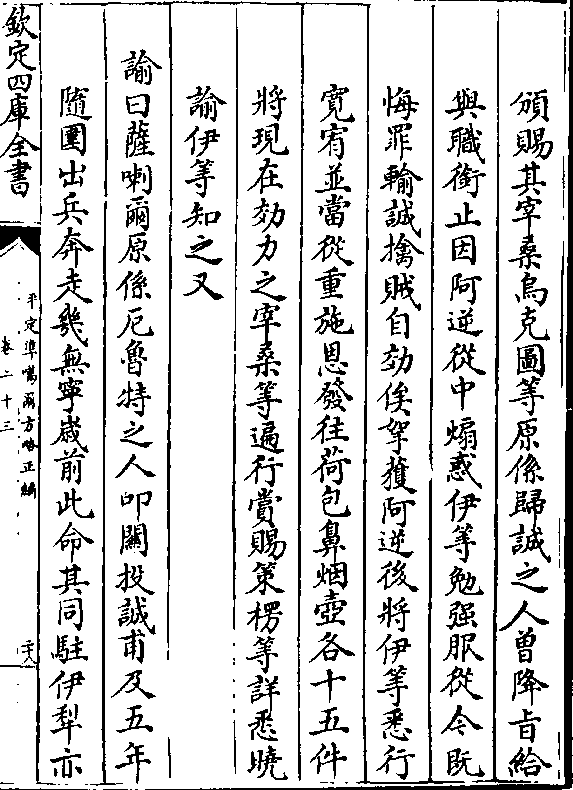 頒賜其宰桑烏克圖等原係歸誠之人曾降旨給
與職銜止因阿逆從中煽惑伊等勉强服從今既
悔罪輸誠擒賊自効俟拏獲阿逆後將伊等悉行
寛宥並當從重施恩發往荷包鼻烟壺各十五件
將現在効力之宰桑等遍行賞賜策楞等詳悉曉
諭伊等知之又
諭曰薩喇爾原係厄魯特之人叩關投誠甫及五年
隨圍出兵奔走幾無寧嵗前此命其同駐伊犁亦
欽定四庫全書
平定凖噶爾方略正編
卷二十三
二十八